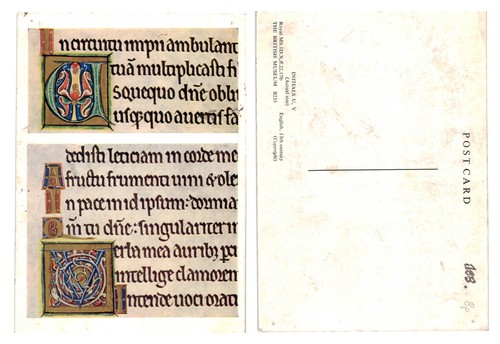 In circuitu impii ambulant
tuā multiplicasti fi
Usquequo dn̄e obli
usq;quo auertis fa
dedisti leticiam in corde me
A fructu frumenti uini ⁊ ole
In pace in idipsum: dorma
tu dn̄e: singulariter in
Verba mea auribꝫ
Intellige clamorem
Intende uoci orati
INITIALS U, V
(Actual size)
English, 13th century
(Copyright)
THE BRITISH MUSEUM B233
POST CARD
8p